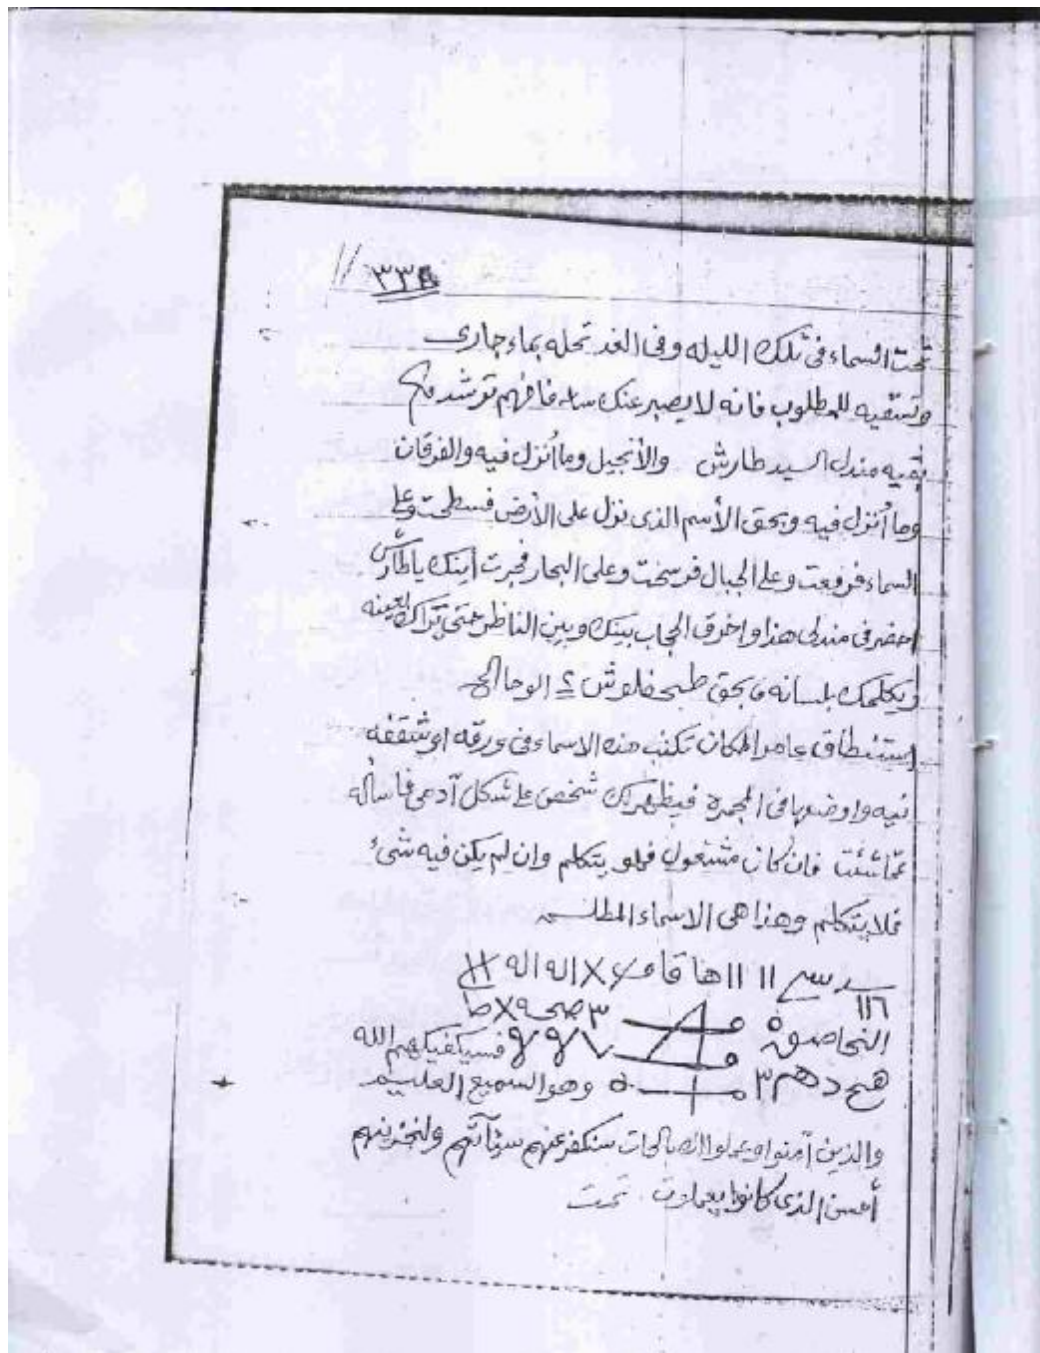 ٣٣٨
تحت السماء فى تلك الليله وفى الغد تحله بماء جارى
وتسقيه للمطلوب فانه لا يصبر عنك ساعه فافهم ترشد
بقيه مندل السيد طارش والأنجيل وما أُنزل فيه والفرقان
وما أُنزل فيه وبحق الأسم الذى نزل على الأرض فسطحت وعلى
السماء فرفعت وعلى الجبال فرسخت وعلى البحار فجرت أينك ياطارش
احضر فى مندلى هذا واخرق الحجاب بينك وبين الناظر حتى يراك بعينه
ويكلمك بلسانه بحق الوحا
إستنطاق عامر المكان تكتب هذه الاسماء فى ورقه او شقفه
نيه واوضعها فى المجمرة فيظهر لك شخص على شكل آدمى فاسأله
عمّا شئت فان كان مشغول فهو يتكلم وان لم يكن فيه شىء
فلا يتكلم وهذا هى الاسماء المطلسمه
١١ ١١ ها قا اله اله
١١٦
٣
فسيكفيكهم الله
٣ وهو السميع العليم
والذين آمنوا وعملوا الصالحات سنكفر عنهم سيئآتهم ولنجزينهم
أحسن الذى كانوا يعملون تمت